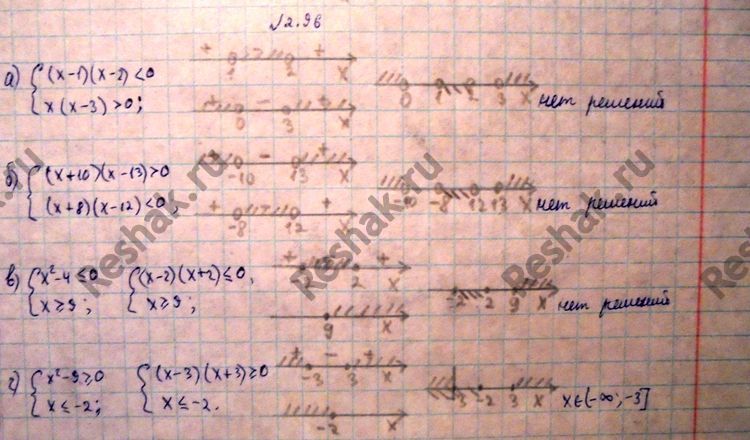 №2.96
а) { (x-1)(x-2)<0
x(x-3)>0;
+ + 1 2 x
+ - + 0 3 x
0 1 2 3 x нет решений
б) { (x+10)(x-13)>0
(x+8)(x-12)<0;
+ - + -10 13 x
+ + -8 12 x
-10 -8 12 13 x нет решений
в) { x²-4≤0
x≥9;
{ (x-2)(x+2)≤0,
x≥9;
+ + 2 x
9 x
-2 2 9 x нет решений
г) { x²-9≥0
x≤-2;
{ (x-3)(x+3)≥0
x≤-2.
+ - + -3 3 x
-2 x
-3 -2 3 x x∈(-∞;-3]
Reshak.ru
Reshak.ru
Reshak.ru
Reshak.ru
Reshak.ru